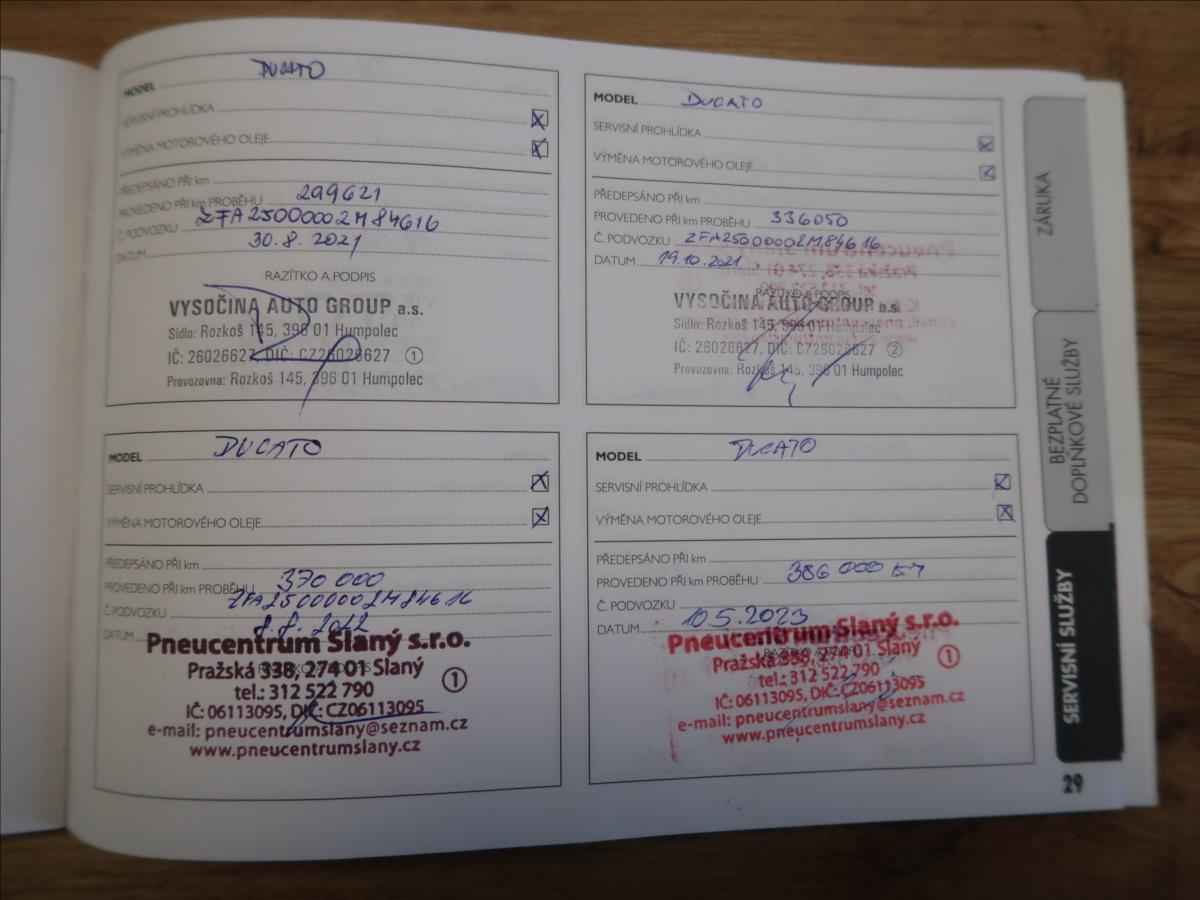 MODEL DUCATO
SERVISNÍ PROHLÍDKA
VÝMĚNA MOTOROVÉHO OLEJE
PŘEDEPSÁNO PŘI km
PROVEDENO PŘI km PROBĚHU 299621
Č. PODVOZKU ZFA2500002M84616
DATUM 30.8.2021
RAZÍTKO A PODPIS
VYSOČINA AUTO GROUP a.s.
Sídlo: Rozkoš 145, 396 01 Humpolec
IČ: 26026627, DIČ: CZ26026627 1
Provozovna: Rozkoš 145, 396 01 Humpolec
MODEL DUCATO
SERVISNÍ PROHLÍDKA
VÝMĚNA MOTOROVÉHO OLEJE
PŘEDEPSÁNO PŘI km
PROVEDENO PŘI km PROBĚHU 336050
Č. PODVOZKU ZFA2500002M84616
DATUM 19.10.2021
RAZÍTKO A PODPIS
VYSOČINA AUTO GROUP a.s.
Sídlo: Rozkoš 145, 396 01 Humpolec
IČ: 26026627, DIČ: CZ26026627 2
Provozovna: Rozkoš 145, 396 01 Humpolec
MODEL DUCATO
SERVISNÍ PROHLÍDKA
VÝMĚNA MOTOROVÉHO OLEJE
PŘEDEPSÁNO PŘI km
PROVEDENO PŘI km PROBĚHU 370 000
Č. PODVOZKU ZFA2500002M84616
DATUM 8.8.2022
RAZÍTKO A PODPIS
Pneucentrum Slaný s.r.o.
Pražská 338, 274 01 Slaný
tel.: 312 522 790 1
IČ: 06113095, DIČ: CZ06113095
e-mail: pneucentrumslany@seznam.cz
www.pneucentrumslany.cz
MODEL DUCATO
SERVISNÍ PROHLÍDKA
VÝMĚNA MOTOROVÉHO OLEJE
PŘEDEPSÁNO PŘI km
PROVEDENO PŘI km PROBĚHU 386 000
Č. PODVOZKU
DATUM 10.5.2023
RAZÍTKO A PODPIS
Pneucentrum Slaný s.r.o.
Pražská 338, 274 01 Slaný
tel.: 312 522 790 1
IČ: 06113095, DIČ: CZ06113095
e-mail: pneucentrumslany@seznam.cz
www.pneucentrumslany.cz
ZÁRUKA
BEZPLATNÉ
DOPLŇKOVÉ SLUŽBY
SERVISNÍ SLUŽBY
29